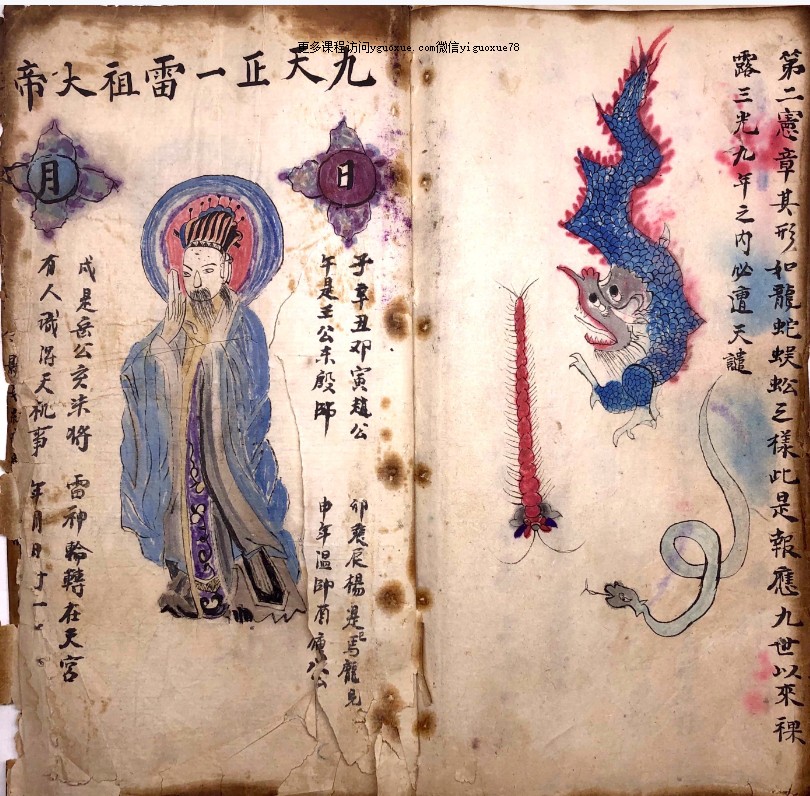 更多课程访问yguoxue.com微信yiguoxue78
第二憲章其形如龍蛇蜈蚣三樣此是報應九世以來裸
露三光九年之内必遭天譴
九天正一雷祖大帝
日
月
子辛丑邓寅趙公
卯辰楊是馬龍見
午是王公未殷帥
申年温帅酉公
戌是岳公亥朱将
雷神輪轉在天宮
有人識得天机事
年月日